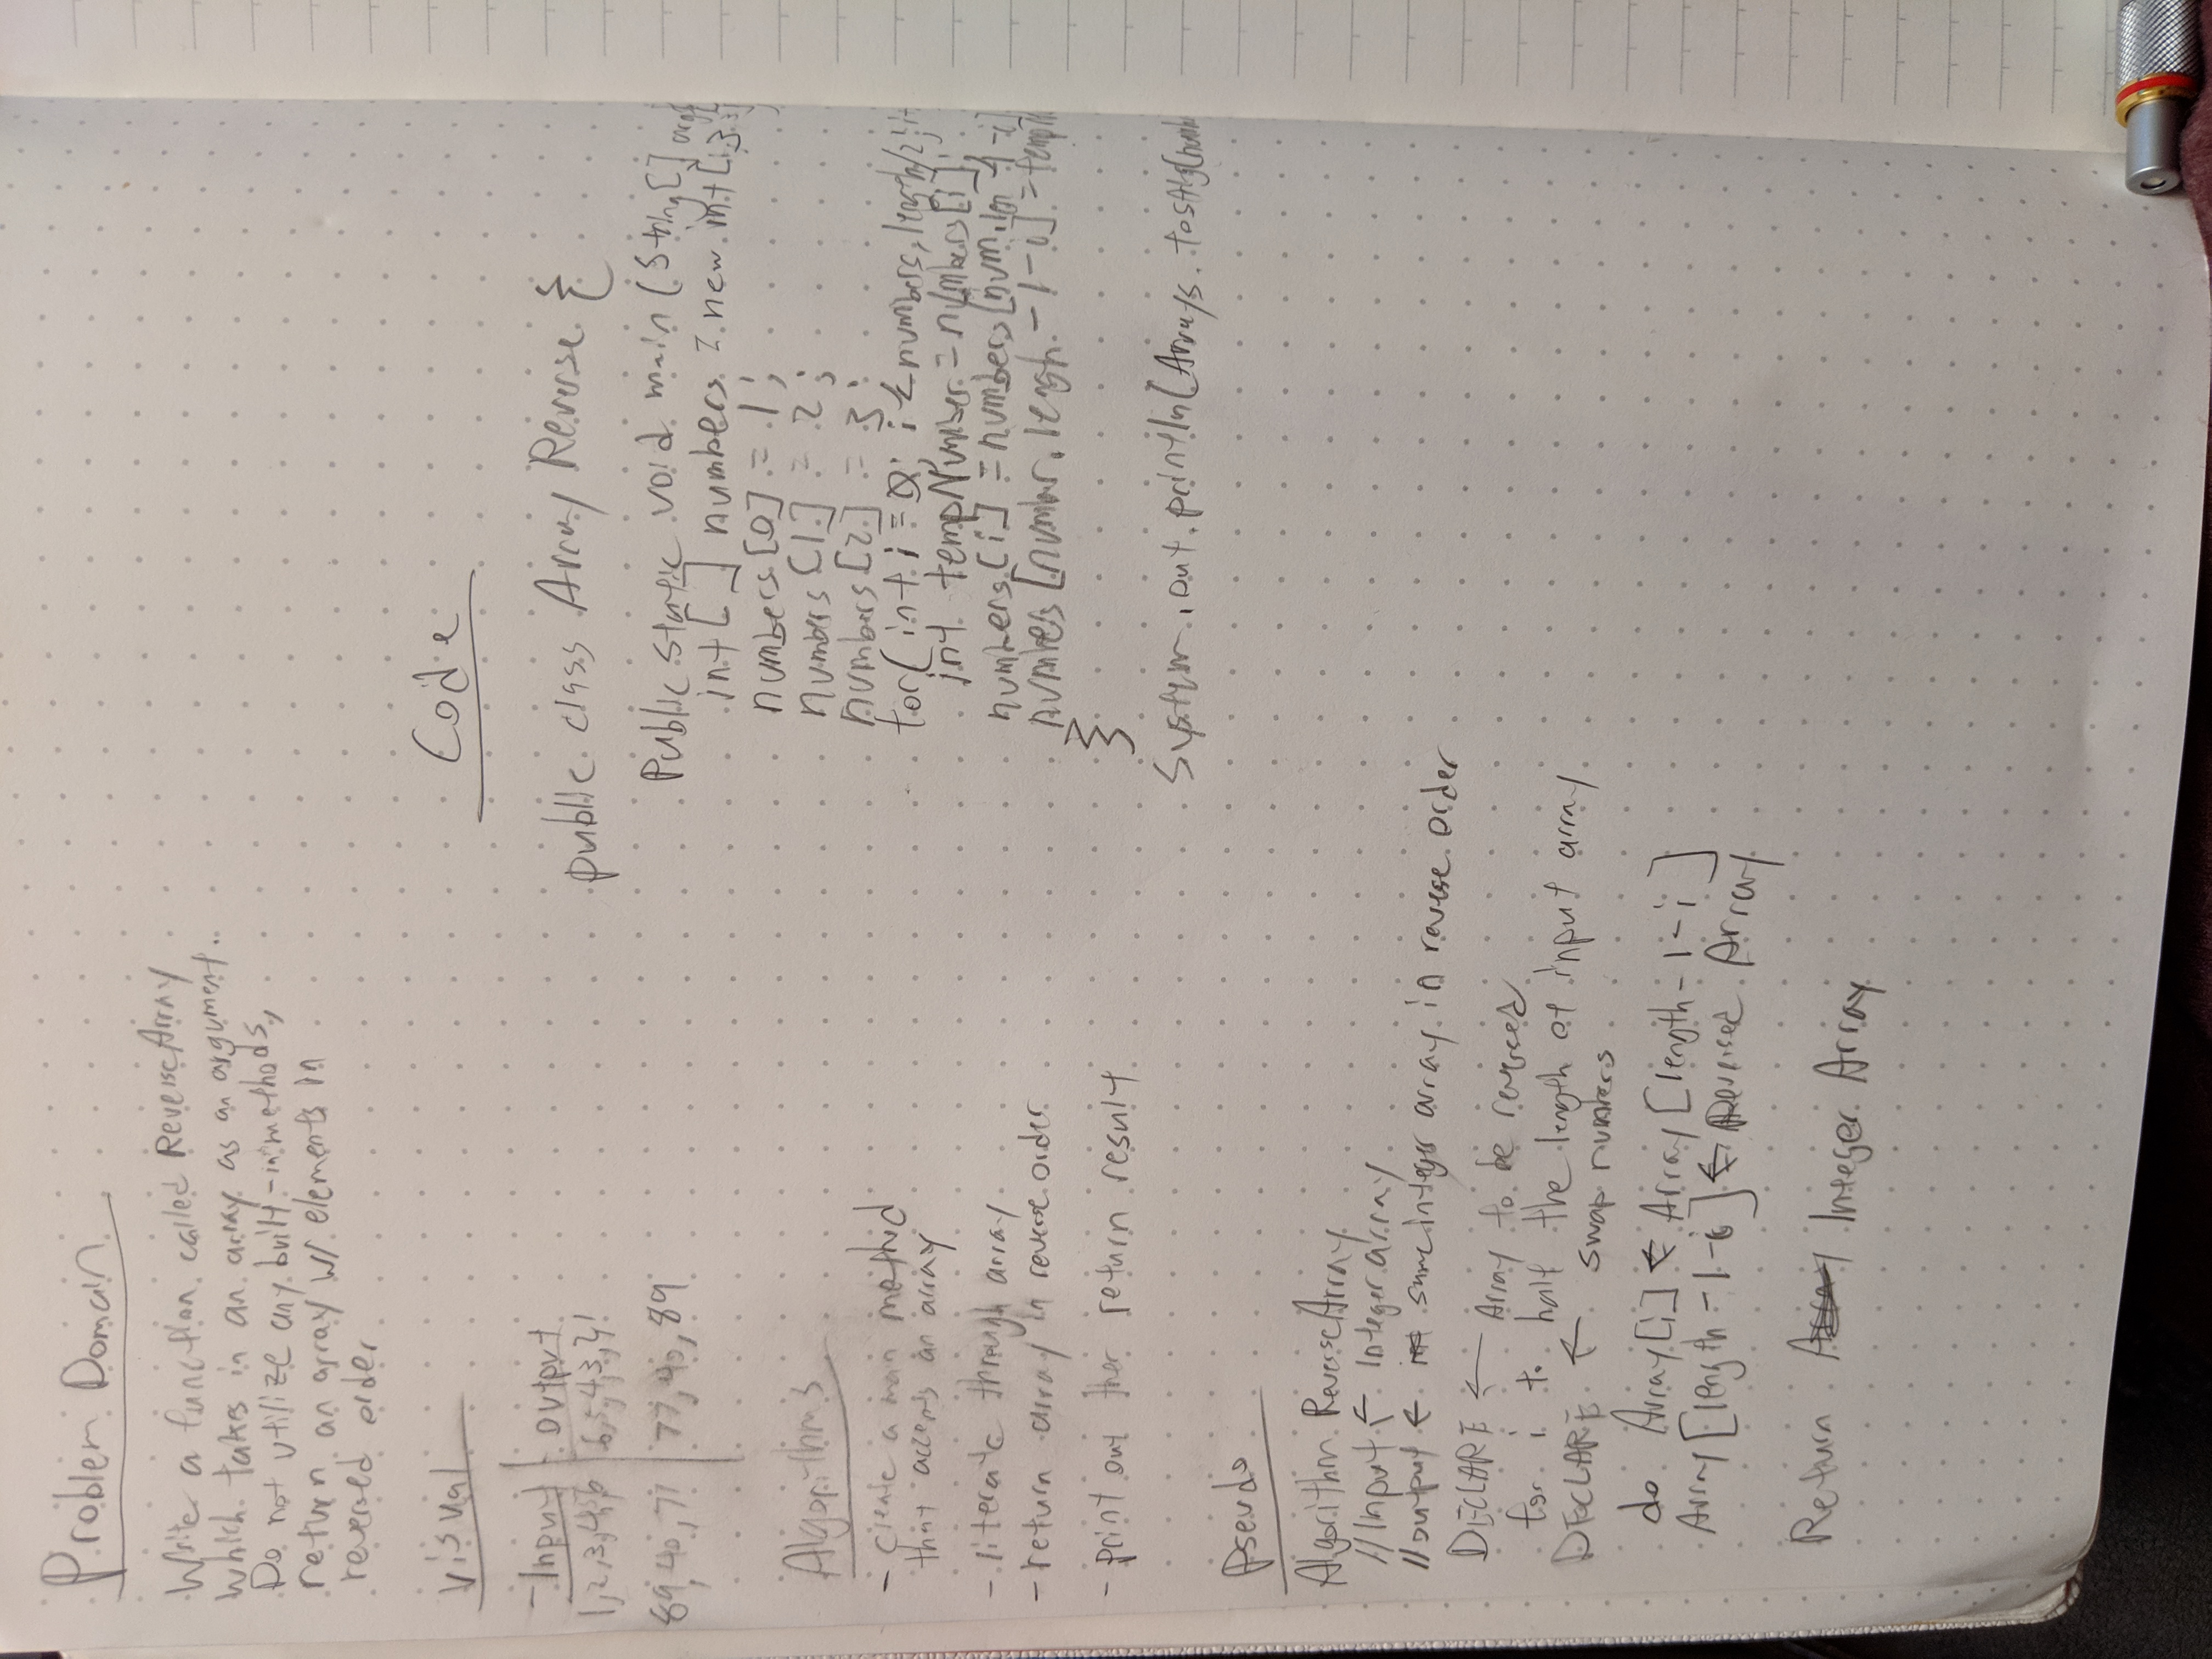 Problem Domain
Write a function called ReverseArray
which takes in an array as an argument.
Do not utilize any built-in methods,
return an array w/ elements in
reversed order
Visual
Input Output
1,2,3,4,5,6 6,5,4,3,2,1
89,40,77 77,40,89
Algorithms
- create a main method
that accepts an array
- iterate through array
- return array in reverse order
- print out ther return result
Pseudo
Algorithm ReverseArray
//Input ← Integer array
//output ← same integer array in reverse order
DECLARE ← Array to be reversed
for i to half the length of input array
DECLARE ← swap numbers
do Array[i] ← Array[length-1-i]
Array[length-1-i] ← Reversed Array
Return Integer Array
Code
public class Array Reverse {
Public static void main (String[] args
int[ ] numbers = new int[
numbers[0] = 1;
numbers[1] = 2;
numbers[2] = 3;
for(int i = 0; i < numbers.length/2;
int tempNumber = numbers[i];
numbers[i] = numbers[num.len -1-i]
numbers[number.length -1-i] = temp
}
System.out.println(Arrays.toString(numb